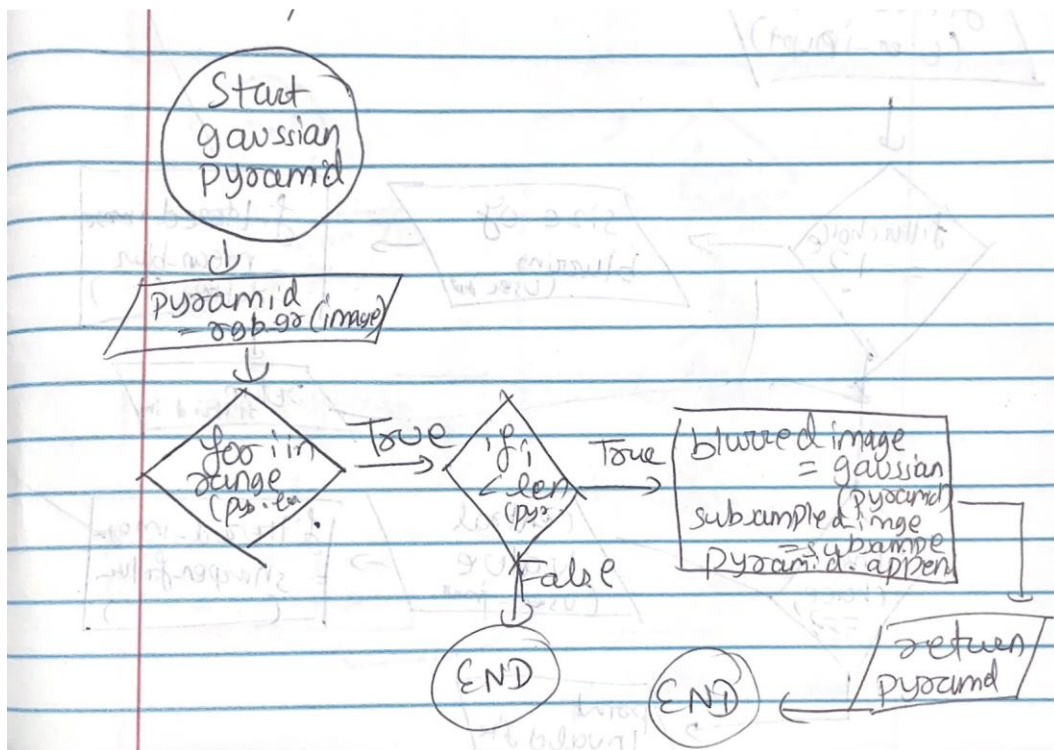 Start
gaussian
pyramid
pyramid
= rgb.gr(image)
for i in
range
True
if i
< len
(pyr.
True
blurred image
= gaussian
(pyramid)
subsampled imge
= subsampe
pyramid.appen
False
END
return
pyramd
END